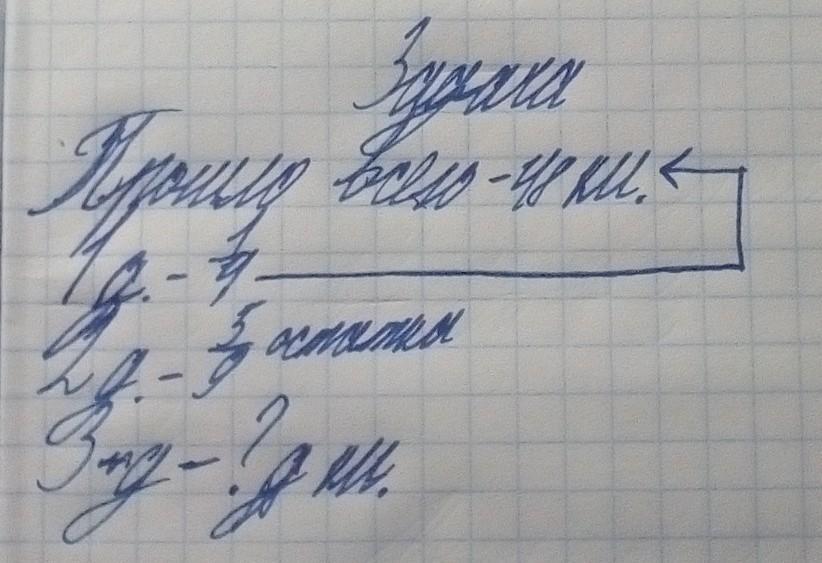 Задача
Прошло всего - 48 км.
1 д. - 1/4
2 д. - 5/9 остатка
3 д - ? км.